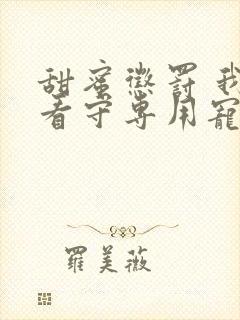 甜蜜懲罰我
看守專用寵
羅美薇